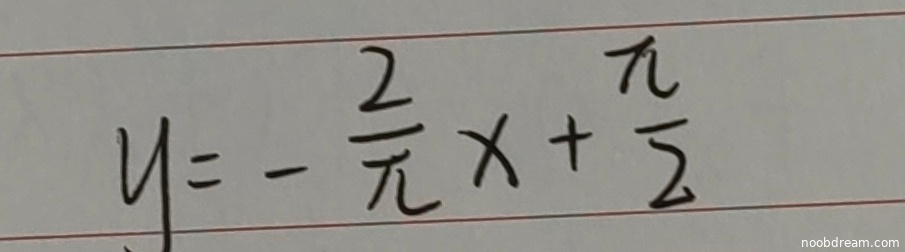 y = - \frac{2}{\pi} x + \frac{\pi}{2}
noobdream.com